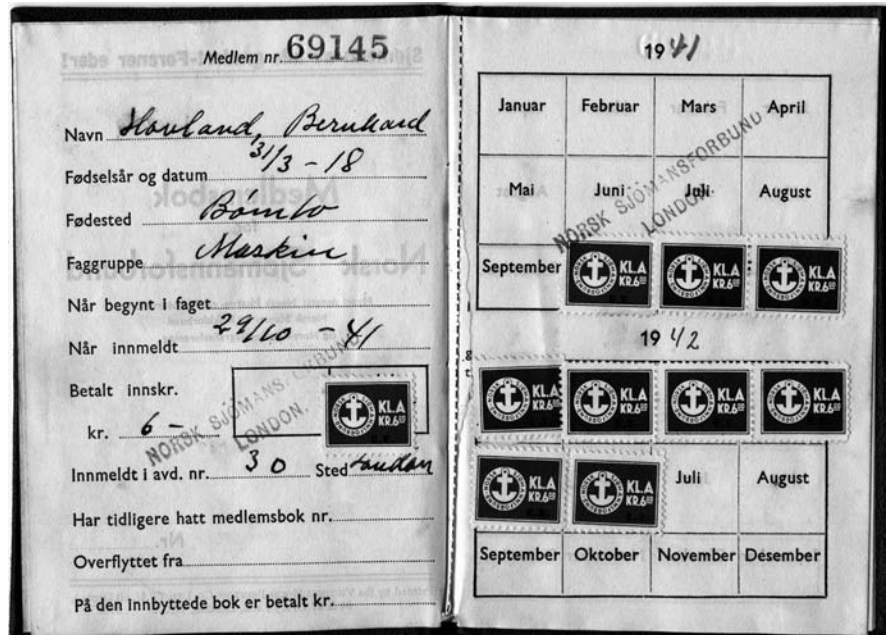 Medlem nr. 69145
Navn Hovland, Bernhard
Fødselsår og datum 31/3 - 18
Fødested Bömlo
Faggruppe Maskin
Når begynt i faget
Når innmeldt 29/10 - 41
Betalt innskr.
kr. 6 -
KLA
KR.600
NORSK SJÖMANSFORBUND
LONDON.
Innmeldt i avd. nr. 30 Sted London
Har tidligere hatt medlemsbok nr.
Overflyttet fra
På den innbyttede bok er betalt kr.
1941
Januar Februar Mars April
Mai Juni Juli August
NORSK SJÖMANSFORBUND
LONDON.
September KLA KR.600 KLA KR.600 KLA KR.600
1942
KLA KR.600 KLA KR.600 KLA KR.600 KLA KR.600
KLA KR.600 KLA KR.600 Juli August
September Oktober November Desember